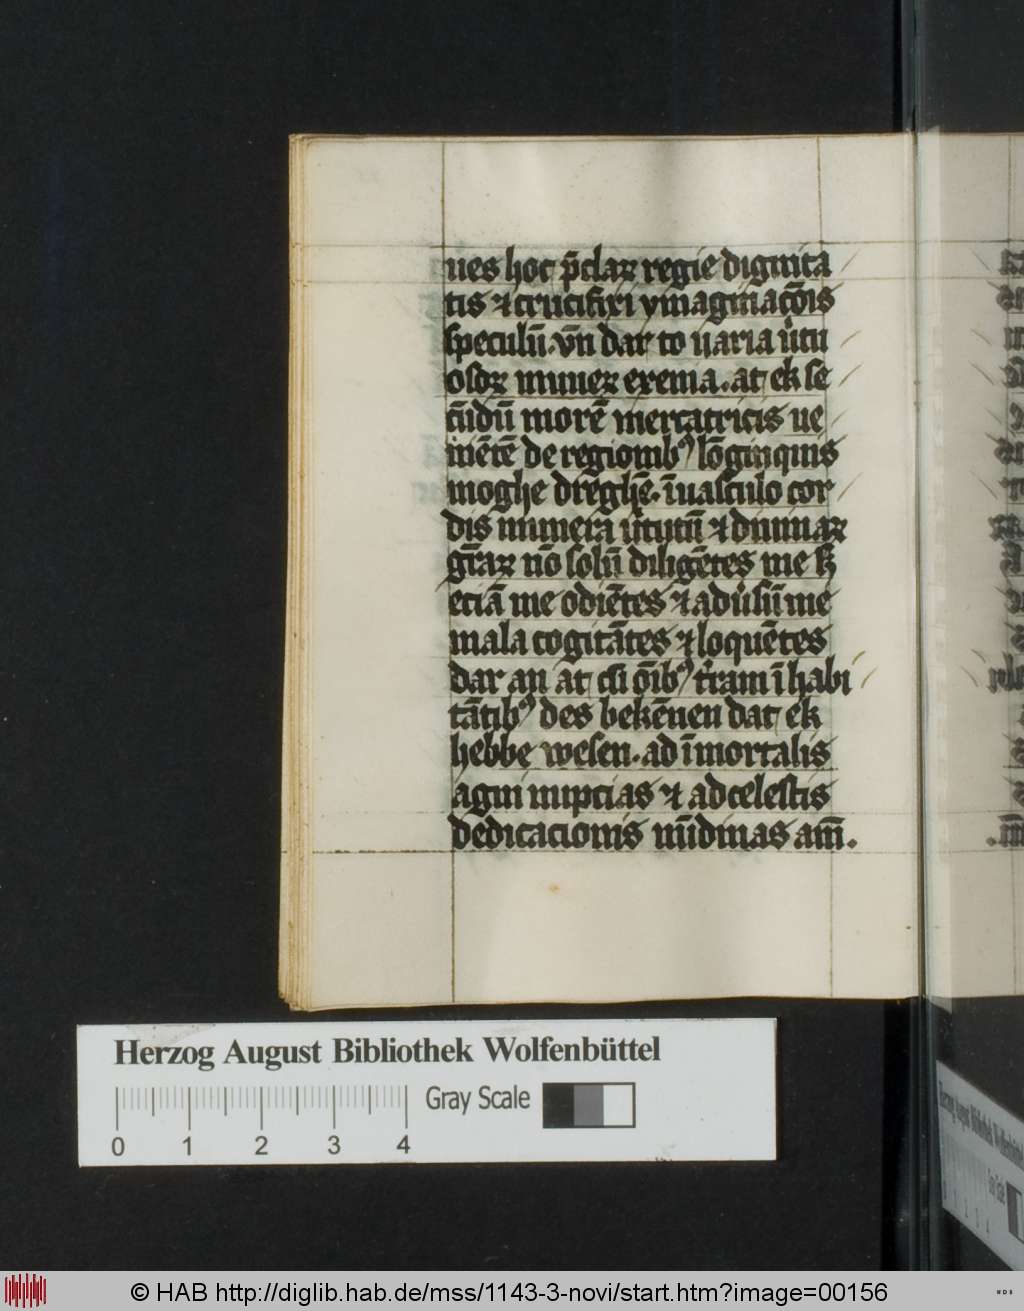 ues hoc p̄claꝝ regie dignita
tis ⁊ crucifixi ymaginac̄ōis
speculū. vn̄ dar to uaria ũtu
osoꝝ muneꝝ exenia. at ek se
cūdū morē mercatricis ue
niētē de regionibꝰ lōginquis
moghe dreghē. ī uasculo cor
dis munera ũtutū ⁊ diuinaꝝ
gr̄aꝝ nō solū diligētes me sꝫ
eciā me odiētes ⁊ adũsū me
mala cogitātes ⁊ loquētes
dar an at cū oībꝰ t̃ram īhabi
tātibꝰ des bekēnen dat ek
hebbe wesen. ad īmortalis
agni nupcias ⁊ ad celestis
dedicacionis nūdinas am̄.
Herzog August Bibliothek Wolfenbüttel
Gray Scale
0 1 2 3 4
© HAB http://diglib.hab.de/mss/1143-3-novi/start.htm?image=00156